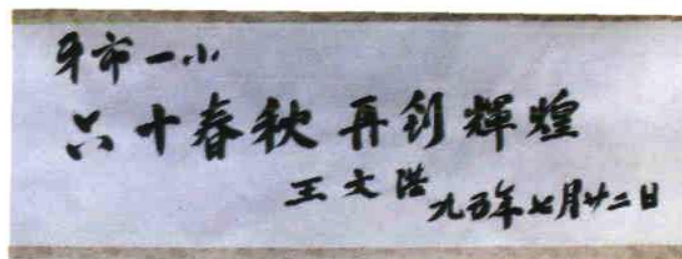 牙市一小
六十春秋 再创輝煌
王文浩
九五年七月廿二日